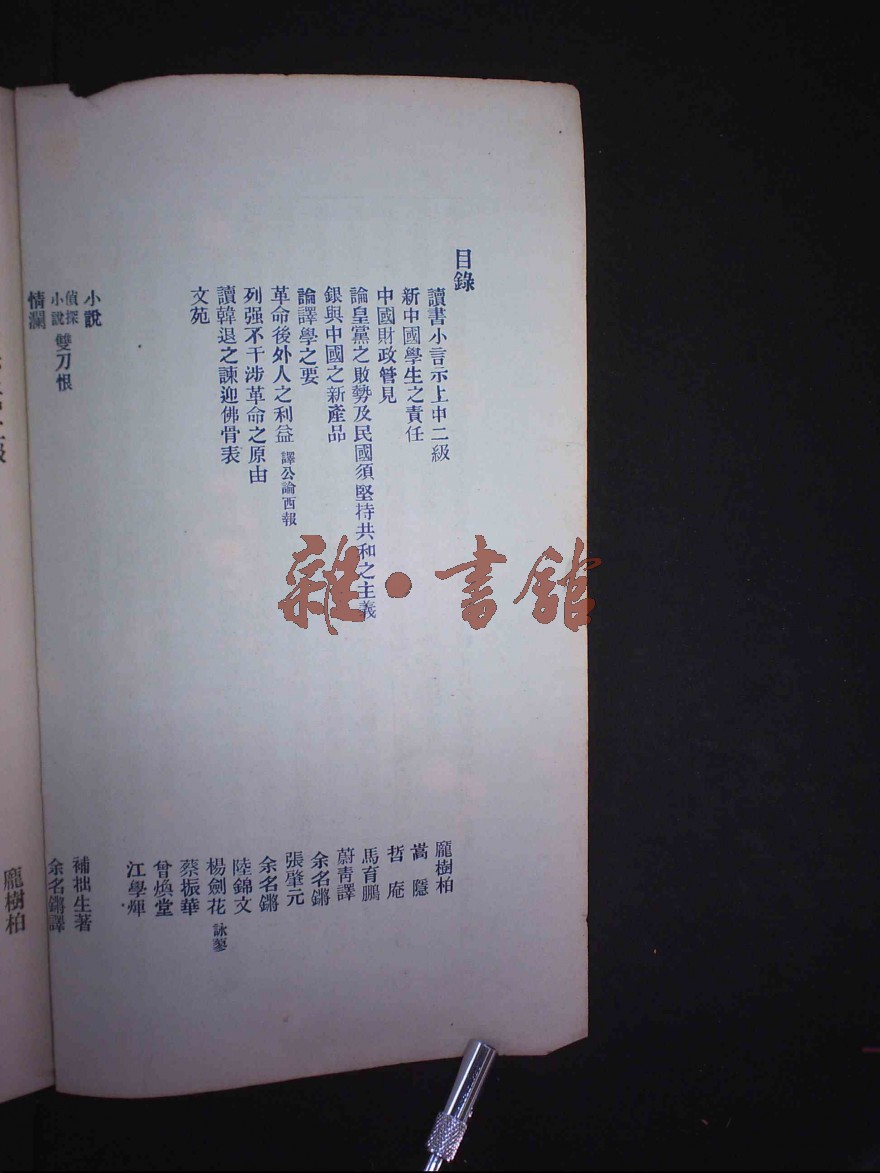 目錄
讀書小言示上中二級 龐樹柏
新中國學生之責任 嵩隱
中國財政管見 哲庵
論皇黨之敗勢及民國須堅持共和之主義 馬育鵬
銀與中國之新產品 蔚青譯
論譯學之要 余名鏘
革命後外人之利益 譯公論西報 張肇元
列强不干涉革命之原由 余名鏘
讀韓退之諫迎佛骨表 陸錦文
文苑 楊劍花 詠蓼
蔡振華
曾煥堂
江學煇
小說 補拙生著
偵探小說 雙刀恨 余名鏘譯
情瀾 龐樹柏
雜·書館